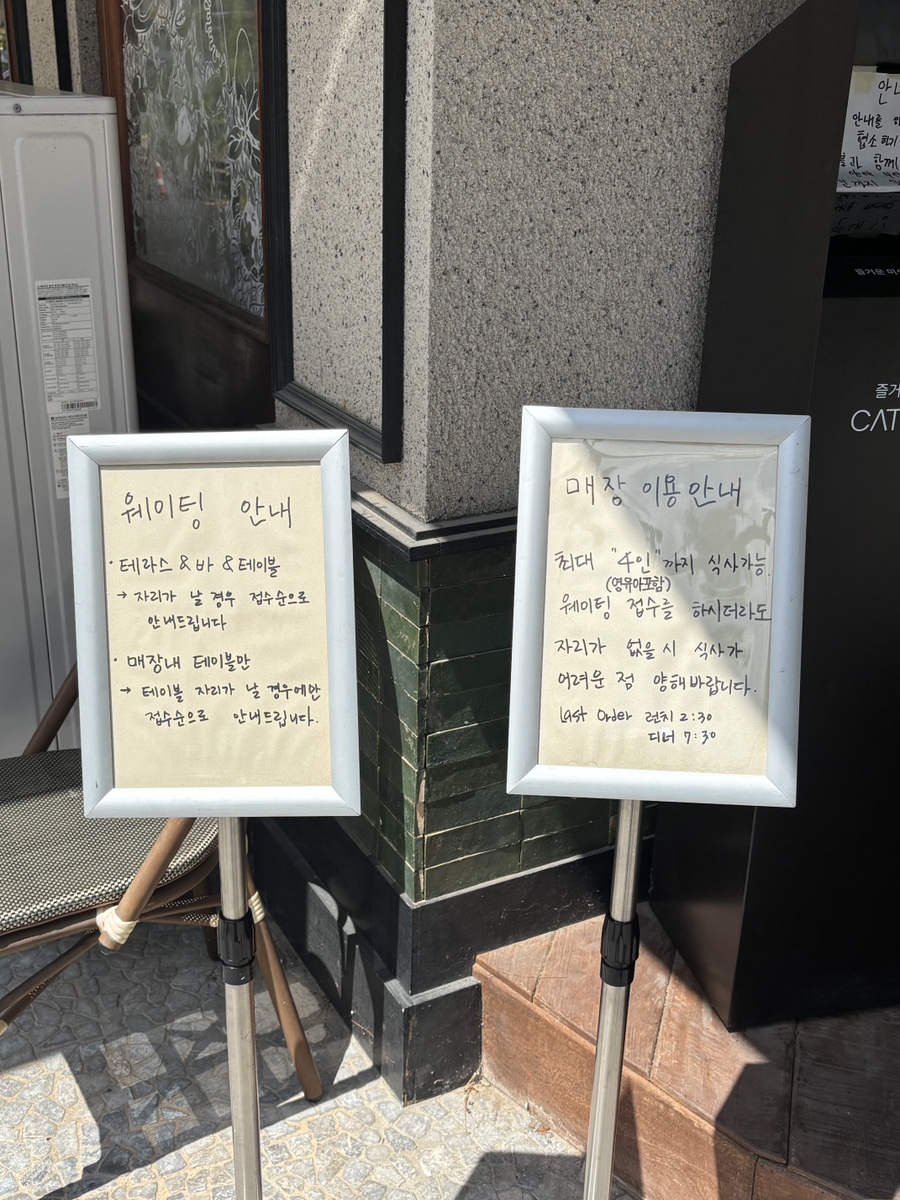 웨이팅 안내
· 테라스 & 바 & 테이블
→ 자리가 날 경우 접수순으로
안내드립니다
· 매장내 테이블만
→ 테이블 자리가 날 경우에만
접수순으로 안내드립니다.
매장 이용안내
최대 "4인"까지 식사가능.
(영유아포함)
웨이팅 접수를 하시더라도
자리가 없을 시 식사가
어려운 점 양해바랍니다.
Last Order 런치 2:30
디너 7:30
안내를
협소하기
함께
즐거운
CAT